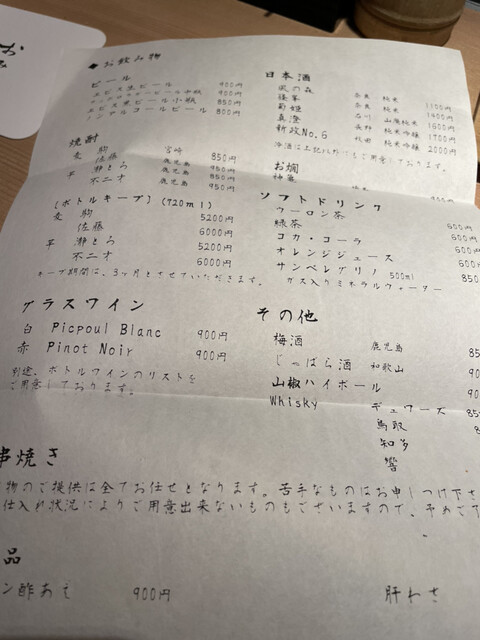 ◆お飲み物
ビール
エビス生ビール 900円
中瓶 950円
エビス黒ビール小瓶 850円
ノンアルコールビール 800円
焼酎
麦 駒 宮崎 850円
佐藤 鹿児島 950円
芋 瀞とろ 鹿児島 850円
不二才 鹿児島 950円
(ボトルキープ)(720ml)
麦 駒 5200円
佐藤 6000円
芋 瀞とろ 5200円
不二才 6000円
キープ期間は、3ヶ月とさせていただきます。
グラスワイン
白 Picpoul Blanc 900円
赤 Pinot Noir 900円
別途、ボトルワインのリストを
ご用意しております。
日本酒
風の森 奈良 純米 1100円
篠峯 奈良 純米 1400円
菊姫 石川 山廃純米 1600円
真澄 長野 純米吟醸 1700円
新政No.6 秋田 純米吟醸 2000円
冷酒は上記以外にもご用意しております。
お燗
神亀 純米 900円
ソフトドリンク
ウーロン茶 600円
緑茶 600円
コカ・コーラ 600円
オレンジジュース 600円
サンペレグリノ 500ml 850
ガス入りミネラルウォーター
その他
梅酒 鹿児島 85
じゃばら酒 和歌山 90
山椒ハイボール 90
Whisky デュワーズ 85
鳥取
知多
響
串焼き
物のご提供は全てお任せとなります。苦手なものはお申しつけ下さ
仕入れ状況によりご用意出来ないものもございますので、予めご了
品
ン酢あえ 900円
肝わさ